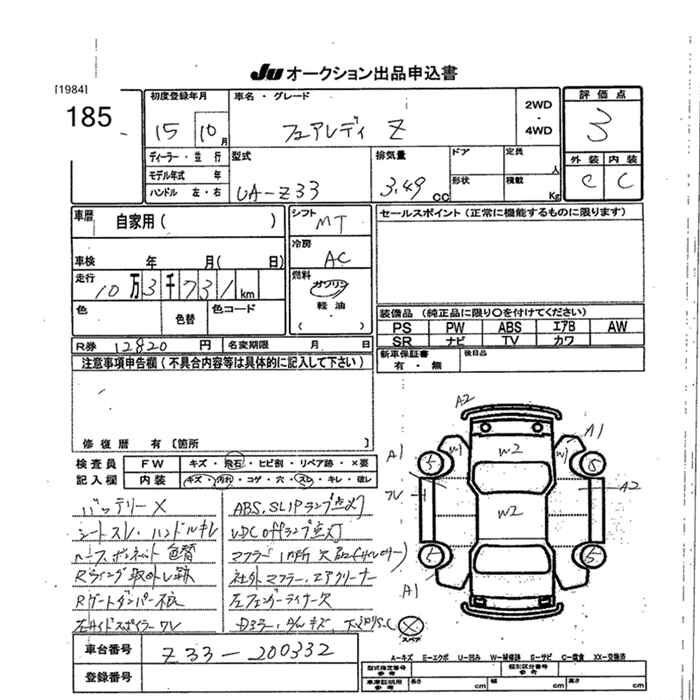 Ju オークション出品申込書
[1984]
185
初度登録年月 車名・グレード 2WD ・ 4WD 評価点
15 10月 フェアレディ Z 3
ディーラー・並行 型式 排気量 ドア 定員 人 外装 内装
モデル年式 年 形状 積載 Kg C C
ハンドル 左・右 UA-Z33 3.49 cc
車歴 自家用( ) シフト MT セールスポイント(正常に機能するものに限ります)
車検 年 月( 日) 冷房 AC
走行 10万3千731km 燃料 ガソリン
軽油
( )
色 色替 色コード 装備品 (純正品に限り○を付けてください)
PS PW ABS エアB AW
R券 12820 円 名変期限 月 日 SR ナビ TV カワ
注意事項申告欄(不具合内容等は具体的に記入して下さい) 新車保証書 後日品
有・無
修復歴 有[箇所 ]
検査員 FW キズ・飛石・ヒビ割・リペア跡・×要
記入欄 内装 キズ・汚れ・コゲ・穴・スレ・キレ・破レ
バッテリーX ABS,SLIPランプ点灯
シートスレ・ハンドルキレ VDC Offランプ点灯
ルーフ ボンネット 色替 マフラー
Rウイング取外し跡 社外マフラー、エアクリーナー
Rゲートダンパー不良 左フェンダーライナー欠
左サイドスポイラーワレ Dミラー
A2
A1 W1 W2 W1 A1
5 5
ワレ W2 A2
5 5
A1
スペア
車台番号 Z33-200332
A-キズ E-エクボ U-凹み W-補修跡 S-サビ C-腐食 XX-交換済
登録番号 型式指定番号 参考 類別区分番号 参考
車庫証明用 参考 長さ cm 幅 cm 高さ cm